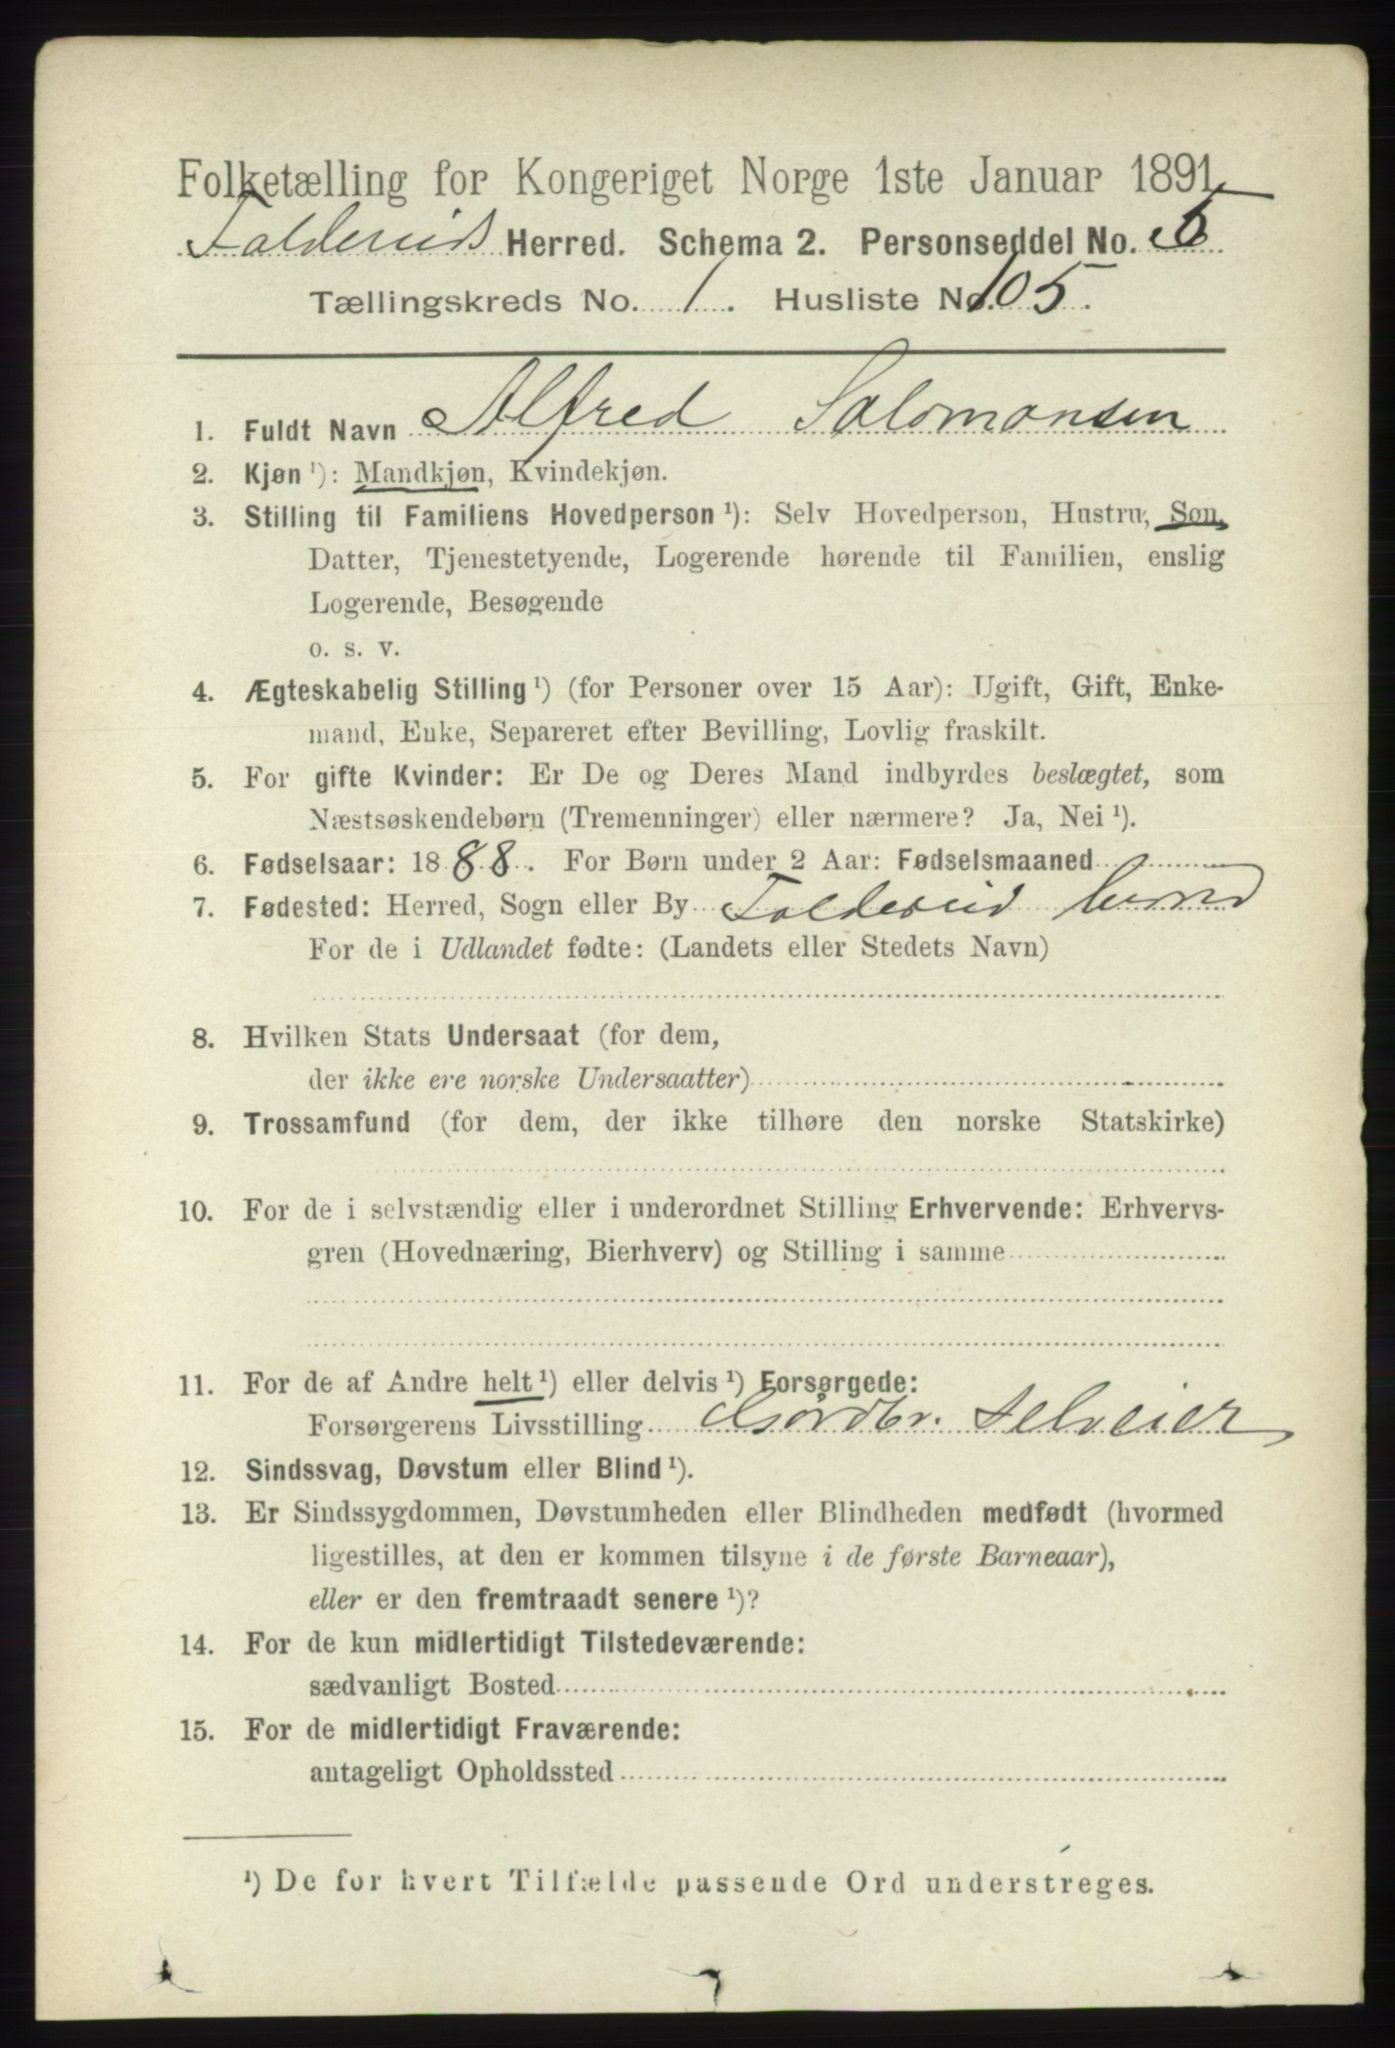 Folketælling for Kongeriget Norge 1ste Januar 1891
Foldereids Herred. Schema 2. Personseddel No. 5
Tællingskreds No. 1. Husliste No. 105.
1. Fuldt Navn Alfred Salomonsen
2. Kjøn ¹): Mandkjøn, Kvindekjøn.
3. Stilling til Familiens Hovedperson ¹): Selv Hovedperson, Hustru, Søn,
Datter, Tjenestetyende, Logerende hørende til Familien, enslig
Logerende, Besøgende
o. s. v.
4. Ægteskabelig Stilling ¹) (for Personer over 15 Aar): Ugift, Gift, Enke-
mand, Enke, Separeret efter Bevilling, Lovlig fraskilt.
5. For gifte Kvinder: Er De og Deres Mand indbyrdes beslægtet, som
Næstsøskendebørn (Tremenninger) eller nærmere? Ja, Nei ¹).
6. Fødselsaar: 1888. For Børn under 2 Aar: Fødselsmaaned
7. Fødested: Herred, Sogn eller By Foldereid herred
For de i Udlandet fødte: (Landets eller Stedets Navn)
8. Hvilken Stats Undersaat (for dem,
der ikke ere norske Undersaatter)
9. Trossamfund (for dem, der ikke tilhøre den norske Statskirke)
10. For de i selvstændig eller i underordnet Stilling Erhvervende: Erhvervs-
gren (Hovednæring, Bierhverv) og Stilling i samme
11. For de af Andre helt ¹) eller delvis ¹) Forsørgede:
Forsørgerens Livsstilling Gårdbr. selveier
12. Sindssvag, Døvstum eller Blind ¹).
13. Er Sindssygdommen, Døvstumheden eller Blindheden medfødt (hvormed
ligestilles, at den er kommen tilsyne i de første Barneaar),
eller er den fremtraadt senere ¹)?
14. For de kun midlertidigt Tilstedeværende:
sædvanligt Bosted
15. For de midlertidigt Fraværende:
antageligt Opholdssted
¹) De for hvert Tilfælde passende Ord understreges.